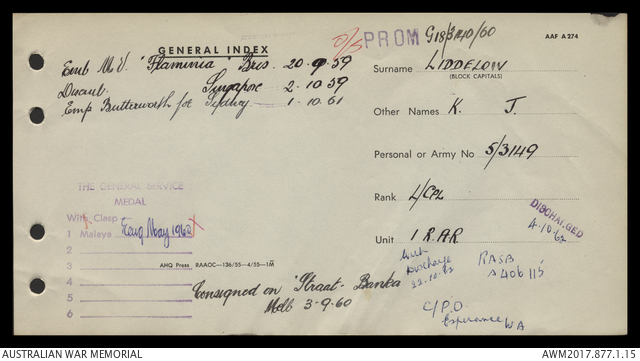 GENERAL INDEX
O/S PROM G18/3/1140/60
AAF A 274
Emb M.V. "Flaminia" Bris. 20-9-59
Disemb. Singapore 2-10-59
Emp Butterworth for Sydney 1-10-61
Surname LIDDELOW
(BLOCK CAPITALS)
Other Names K. J.
Personal or Army No 5/3149
Rank L/CPL
Unit 1 RAR
DISCHARGED
4-10-62
THE GENERAL SERVICE
MEDAL
With Clasp
1 Malaya May 1960 X
2
3
4
5
6
AHQ Press RAAOC—136/55—4/55—1M
Consigned on "Straat-Banka
Melb 3-9-60
Discharge
22-10-62
RASB
C/P.O
Esperance WA
AUSTRALIAN WAR MEMORIAL
AWM2017.877.1.15